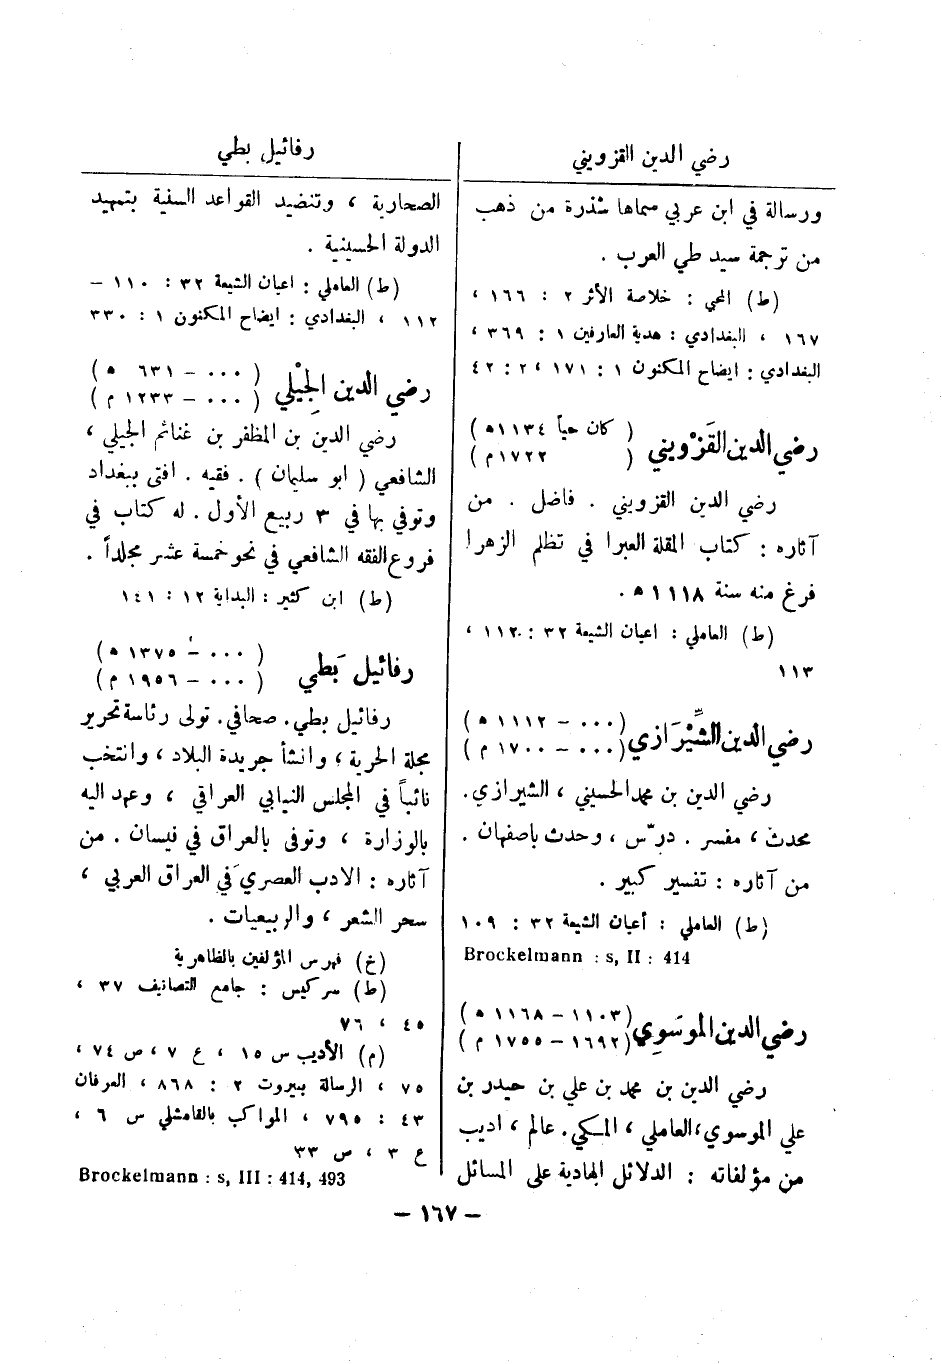 رضي الدين القزويني
ورسالة في ابن عربي سماها شذرة من ذهب
من ترجمة سيد طي العرب .
(ط) المحبي : خلاصة الأثر ٢ : ١٦٦ ،
١٦٧ ، البغدادي : هدية العارفين ١ : ٣٦٩ ،
البغدادي : ايضاح المكنون ١ : ١٧١ ، ٢ : ٤٢
رضي الدين القَزْويني ( كان حياً ١١٣٤ ه )
( ١٧٢٢ م )
رضي الدين القزويني . فاضل . من
آثاره : كتاب المقلة العبرا في تظلم الزهرا
فرغ منه سنة ١١١٨ ه .
(ط) العاملي : اعيان الشيعة ٣٢ : ١١٢ ،
١١٣
رضي الدين الشِّيْرَازي (٠٠٠ – ١١١٢ ه )
(٠٠٠ – ١٧٠٠ م )
رضي الدين بن محمد الحسيني ، الشيرازي .
محدث ، مفسر . درّس ، وحدث باصفهان .
من آثاره : تفسير كبير .
(ط) العاملي : أعيان الشيعة ٣٢ : ١٠٩
Brockelmann : s, II : 414
رضي الدين الموسَوِي (١١٠٣ – ١١٦٨ ه )
(١٦٩٢ – ١٧٥٥ م )
رضي الدين بن محمد بن علي بن حيدر بن
علي الموسوي ، العاملي ، المكي . عالم ، اديب
من مؤلفاته : الدلائل الهادية على المسائل
رفائيل بطي
الصحاربة ، وتنضيد القواعد السنية بتمهيد
الدولة الحسينية .
(ط) العاملي : اعيان الشيعة ٣٢ : ١١٠ –
١١٢ ، البغدادي : ايضاح المكنون ١ : ٣٣٠
رضي الدين الجِيْلي ( ٠٠٠ – ٦٣١ ه )
( ٠٠٠ – ١٢٣٣ م )
رضي الدين بن المظفر بن غنائم الجيلي ،
الشافعي ( ابو سليمان ) . فقيه . افتى ببغداد
وتوفي بها في ٣ ربيع الأول . له كتاب في
فروع الفقه الشافعي في نحو خمسة عشر مجلداً .
(ط) ابن كثير : البداية ١٢ : ١٤١
رفائيل بَطي ( ٠٠٠ – ١٣٧٥ ه )
( ٠٠٠ – ١٩٥٦ م )
رفائيل بطي . صحافي . تولى رئاسة تحرير
مجلة الحرية ؛ وانشأ جريدة البلاد ، وانتخب
نائباً في المجلس النيابي العراقي ، وعهد اليه
بالوزارة ، وتوفى بالعراق في نيسان . من
آثاره : الادب العصري في العراق العربي ،
سحر الشعر ، والربيعيات .
(خ) فهرس المؤلفين بالظاهرية
(ط) سركيس : جامع التصانيف ٣٧ ،
٤٥ ، ٧٦
(م) الأديب س ١٥ ، ع ٧ ، ص ٧٤ ،
٧٥ ، الرسالة ببيروت ٢ : ٨٦٨ ، العرفان
٤٣ : ٧٩٥ ، المواكب بالقامشلي س ٦ ،
ع ٣ ، ص ٣٣
Brockelmann : s, III : 414, 493
– ١٦٧ –